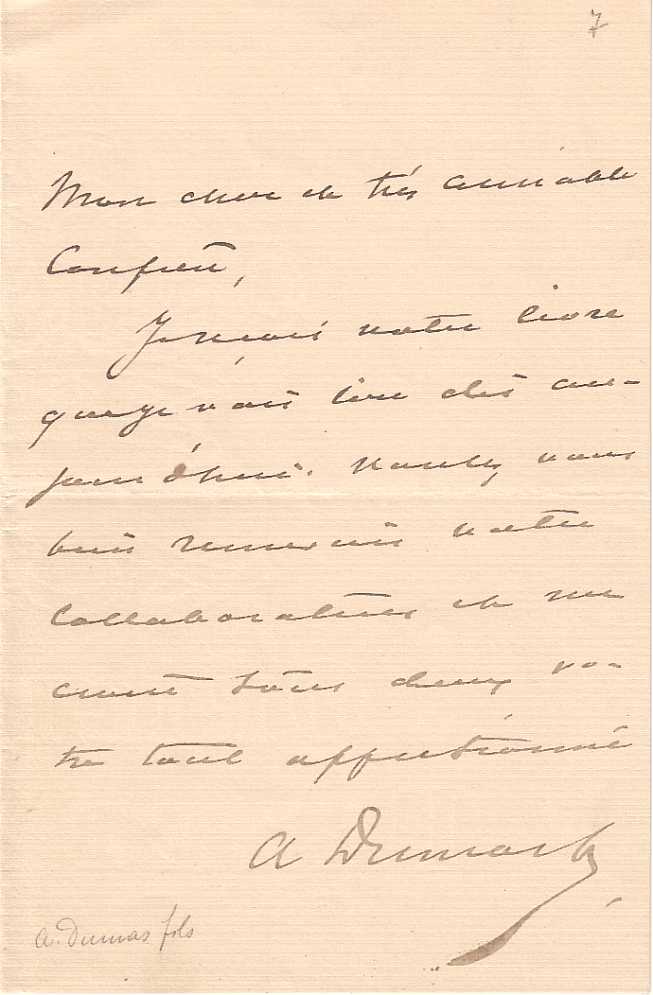 7
Mon cher et très aimable
Confrère,
Je reçois votre livre
que je vais lire dès au-
jourd'hui. Voulez vous
bien remercier votre
collaborateur et me
croire tous deux vo-
tre tout affectionné
A Dumas f
A. Dumas fils